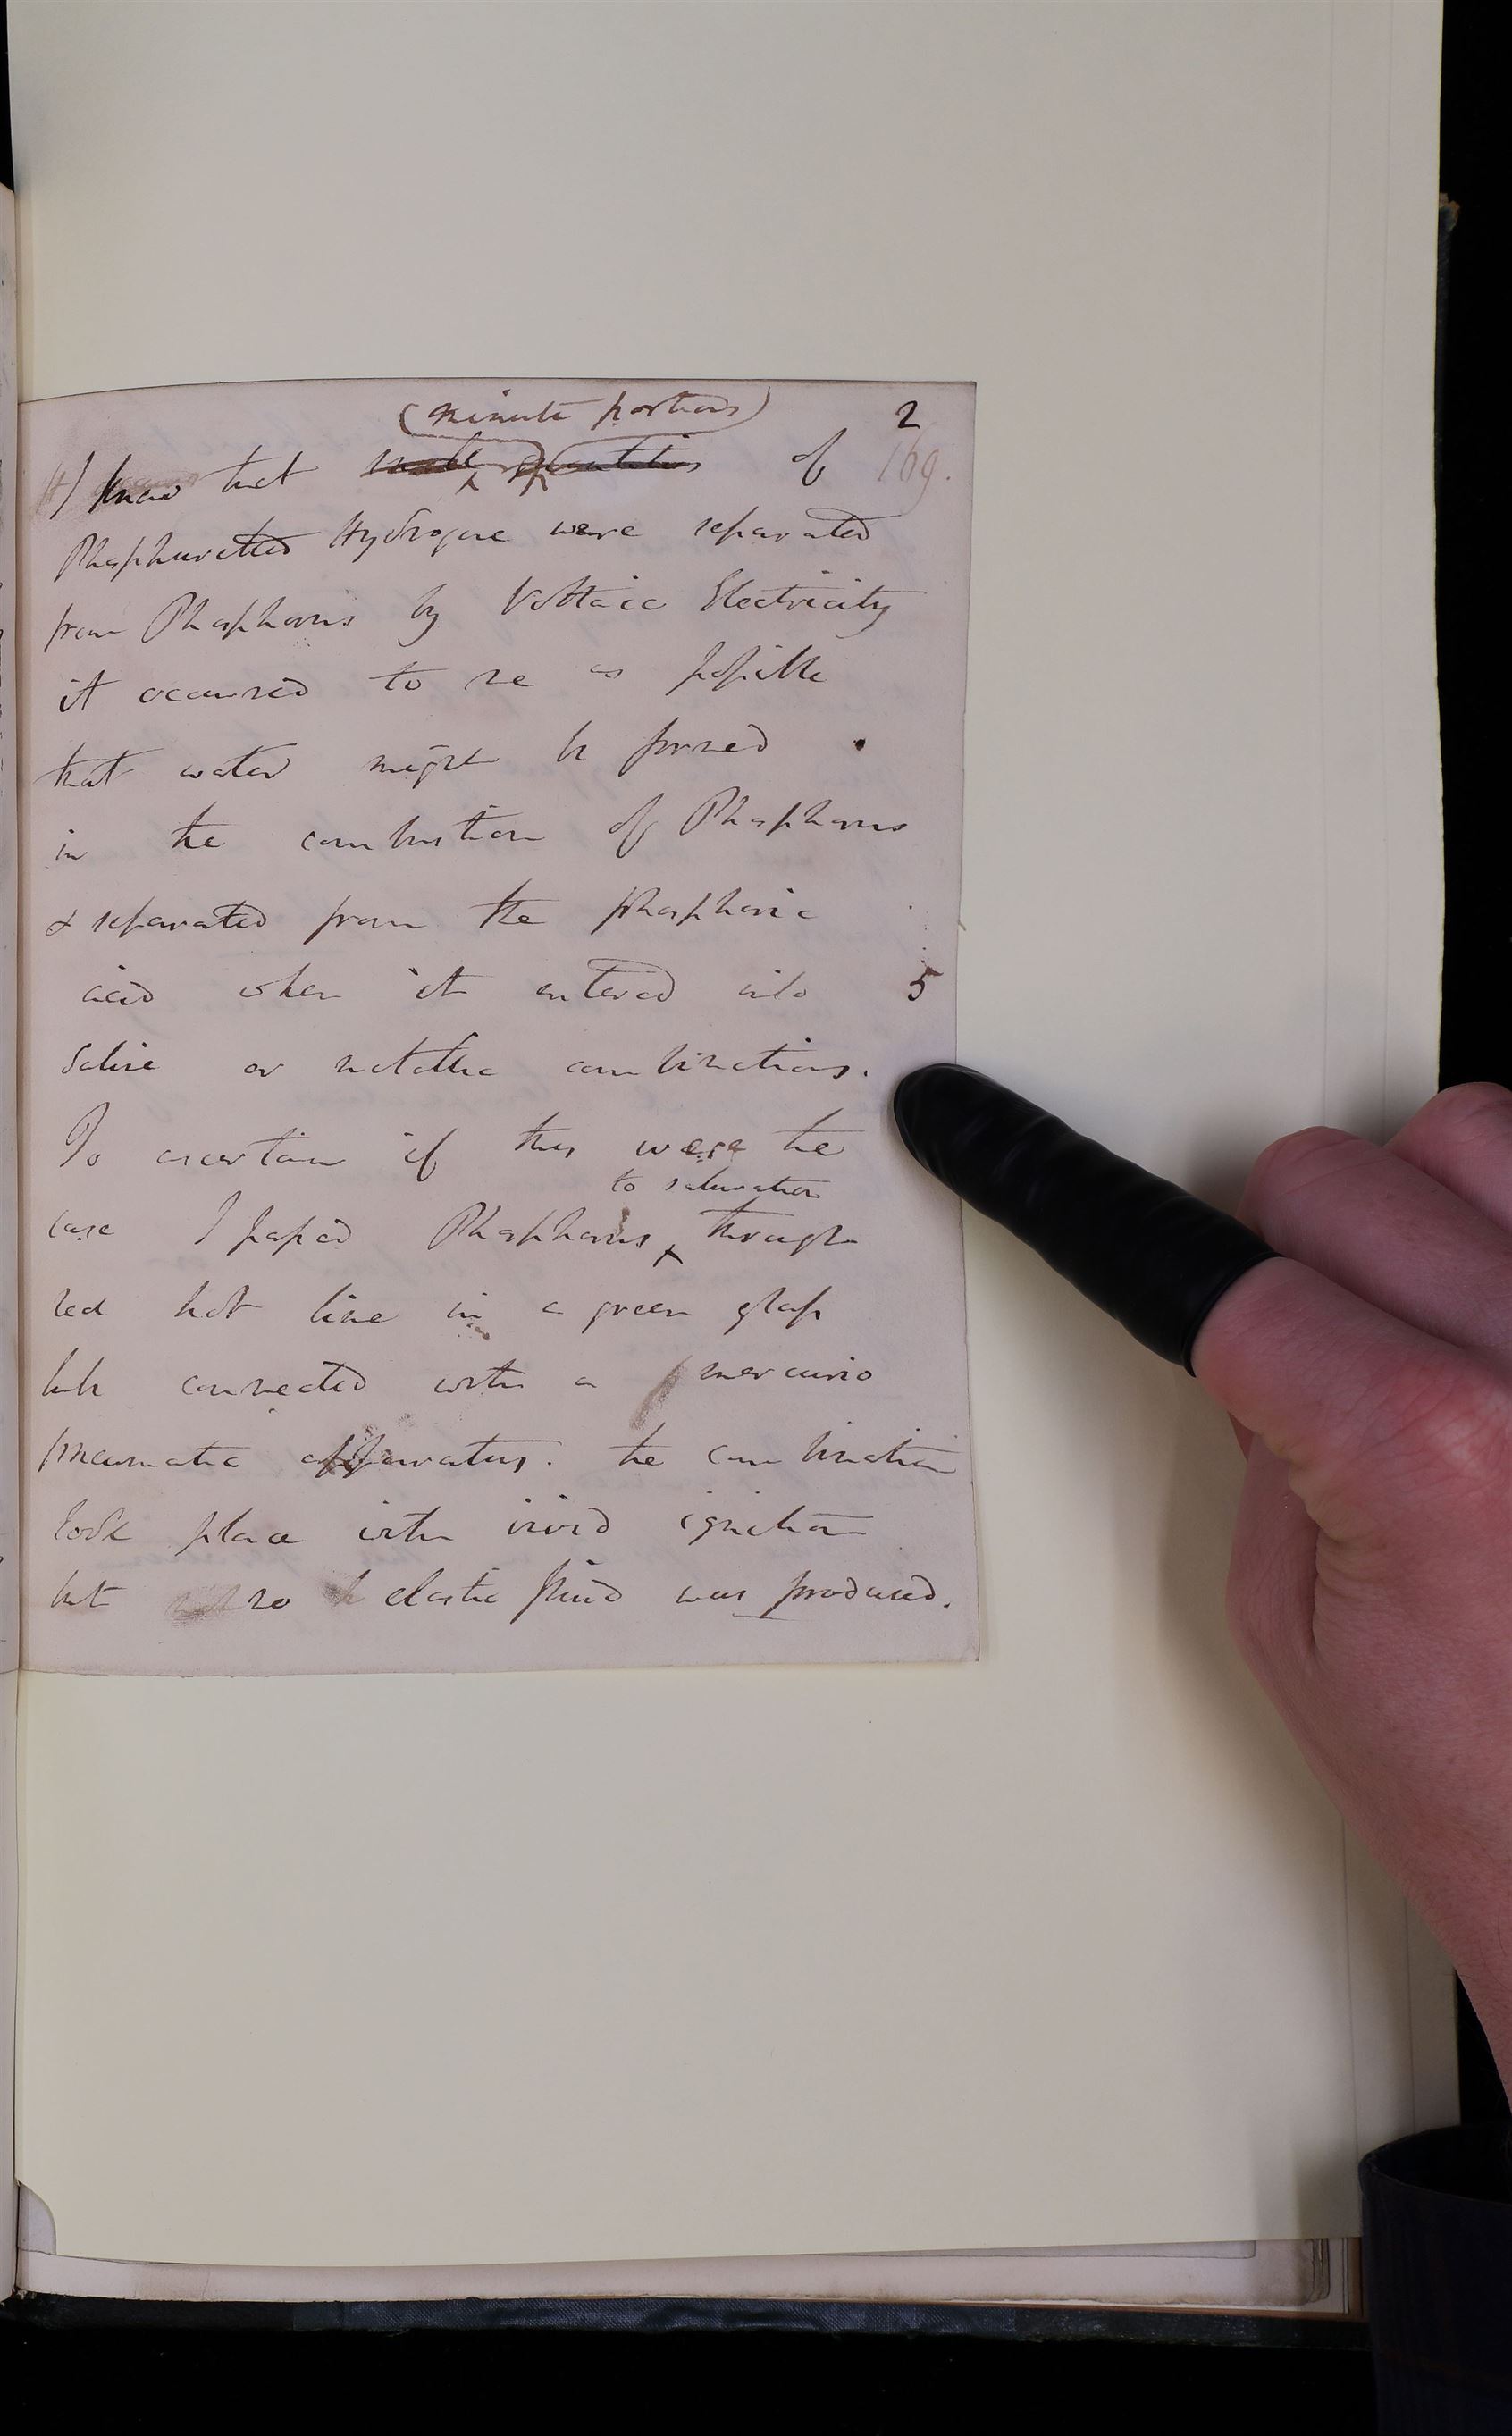 (minute portions) 2
I knew that small quantities of 169.
Phosphuretted Hydrogene were separated
from Phosphorus by Voltaic Electricity
it occurred to me as possible
that water might be formed
in the combustion of Phosphorus
& separated from the phosphoric
acid when it entered into 5
saline or metallic combinations.
To ascertain if this were the
to saturation
case I passed Phosphorus through
red hot lime in a green glass
tube connected with a mercurio
pneumatic apparatus. the combination
took place with vivid ignition
but no elastic fluid was produced.